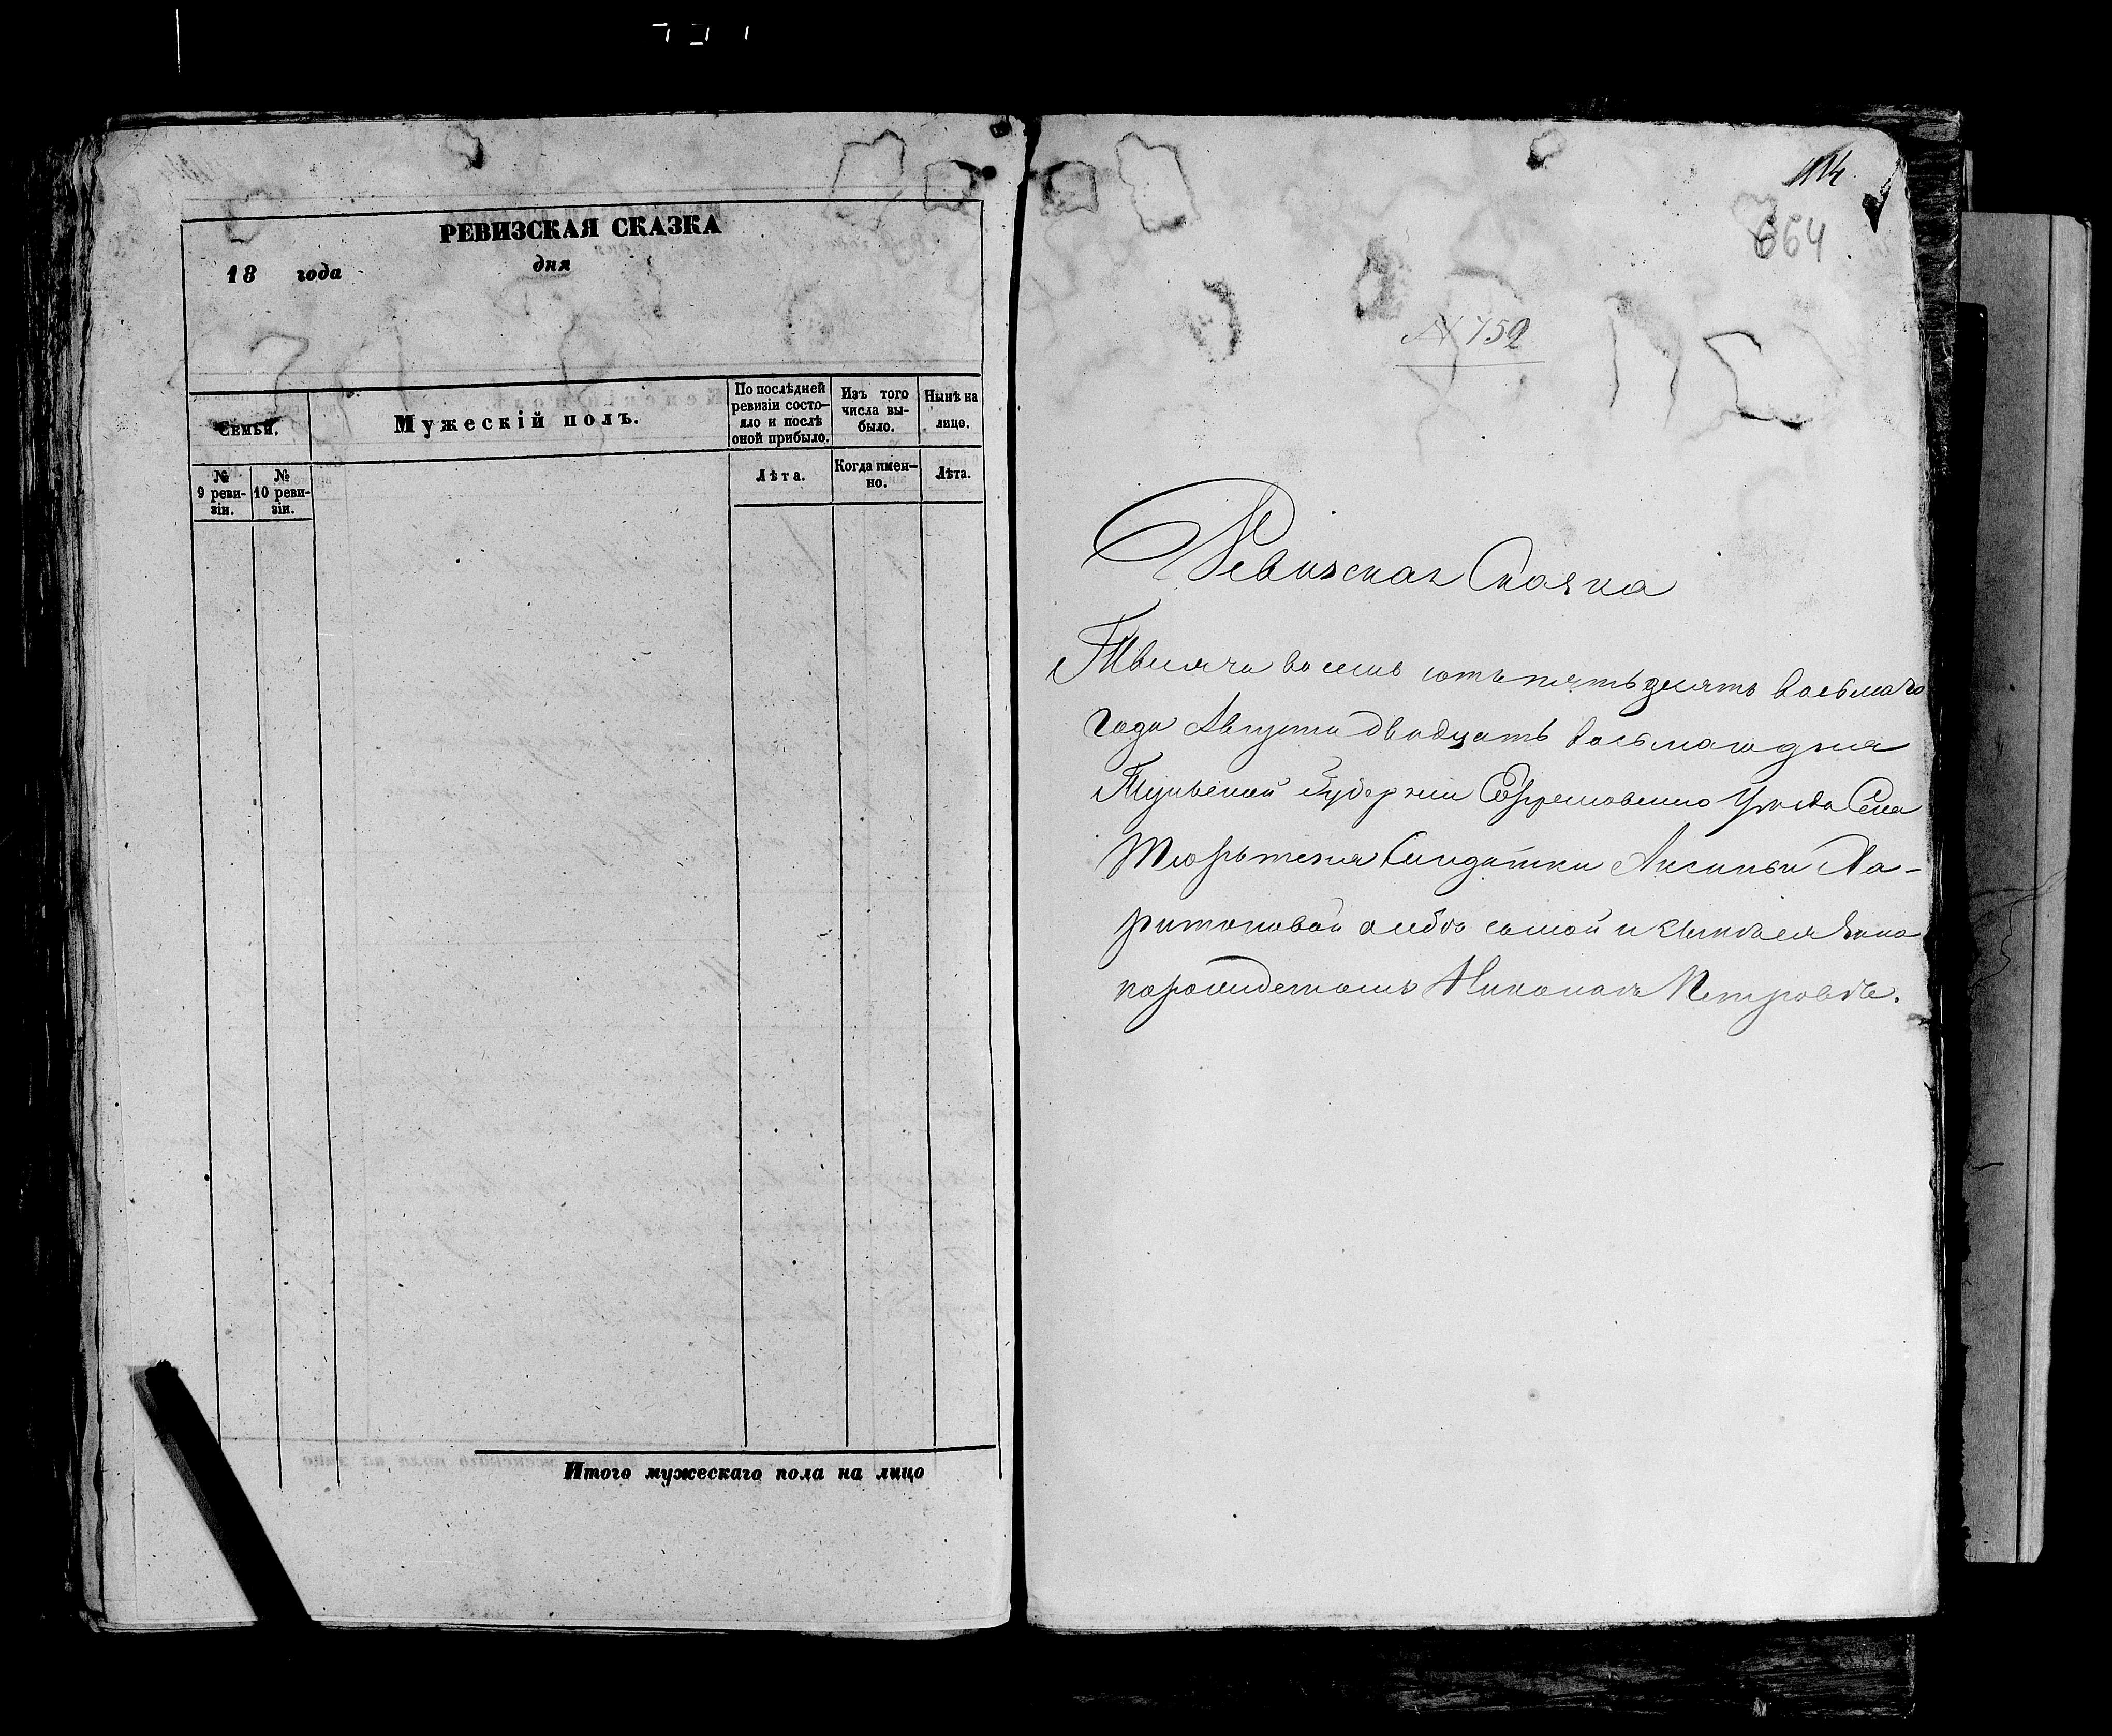 РЕВИЗСКАЯ СКАЗКА
18 года дня
Семьи.
Мужескій полъ.
По послѣдней ревизіи состо-
яло и послѣ
оной прибыло.
Изъ того
числа вы-
было.
Нынѣ на
лицо.
№
9 реви-
зіи.
№
10 реви-
зіи.
Лѣта.
Когда имен-
но.
Лѣта.
Итого мужескаго пола на лицо
664
N 759
Ревизская Сказка
Тысяча восемь сотъ пятьдесятъ восьмаго
года Августа двадцать восьмаго дня
Тульской Губерніи Ефремовскаго Уѣзда Села
Солдатки Аксиньи Ха-
ритоновой о себѣ самой и
Николаѣ Петровѣ.